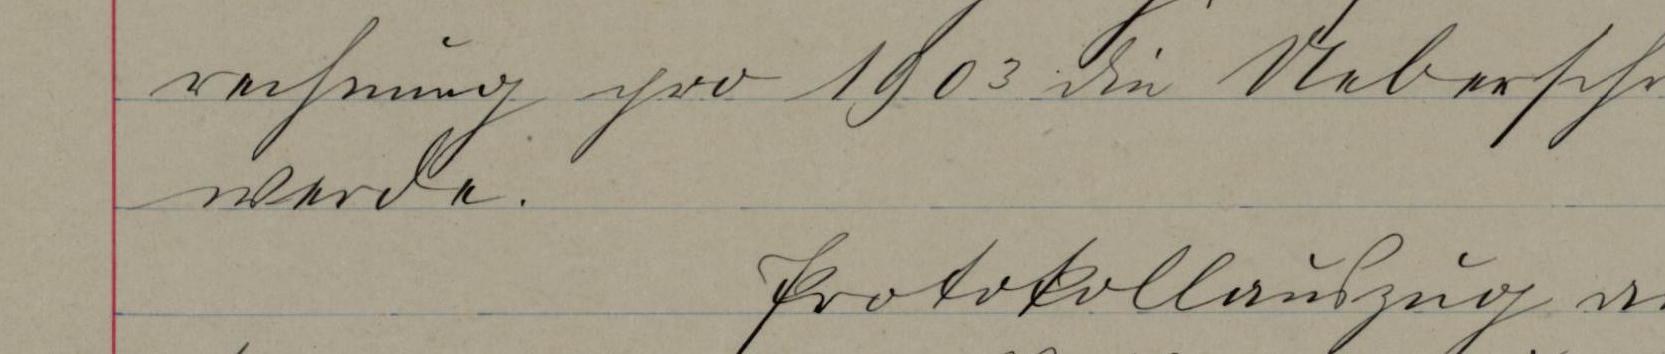 rechnung pro 1903 die Ueberschr
werde.
Protokollauszug an